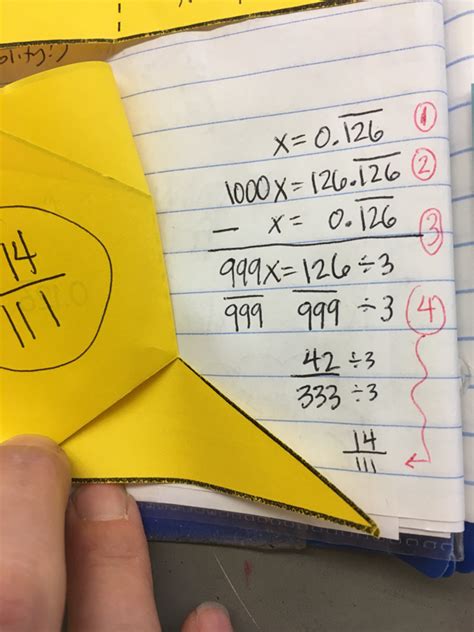 14
111
x = 0.1̅2̅6̅ ①
1000x = 126.1̅2̅6̅ ②
− x = 0.1̅2̅6̅ ③
999x = 126 ÷3
999 999 ÷3 ④
42 ÷3
333 ÷3
14
111